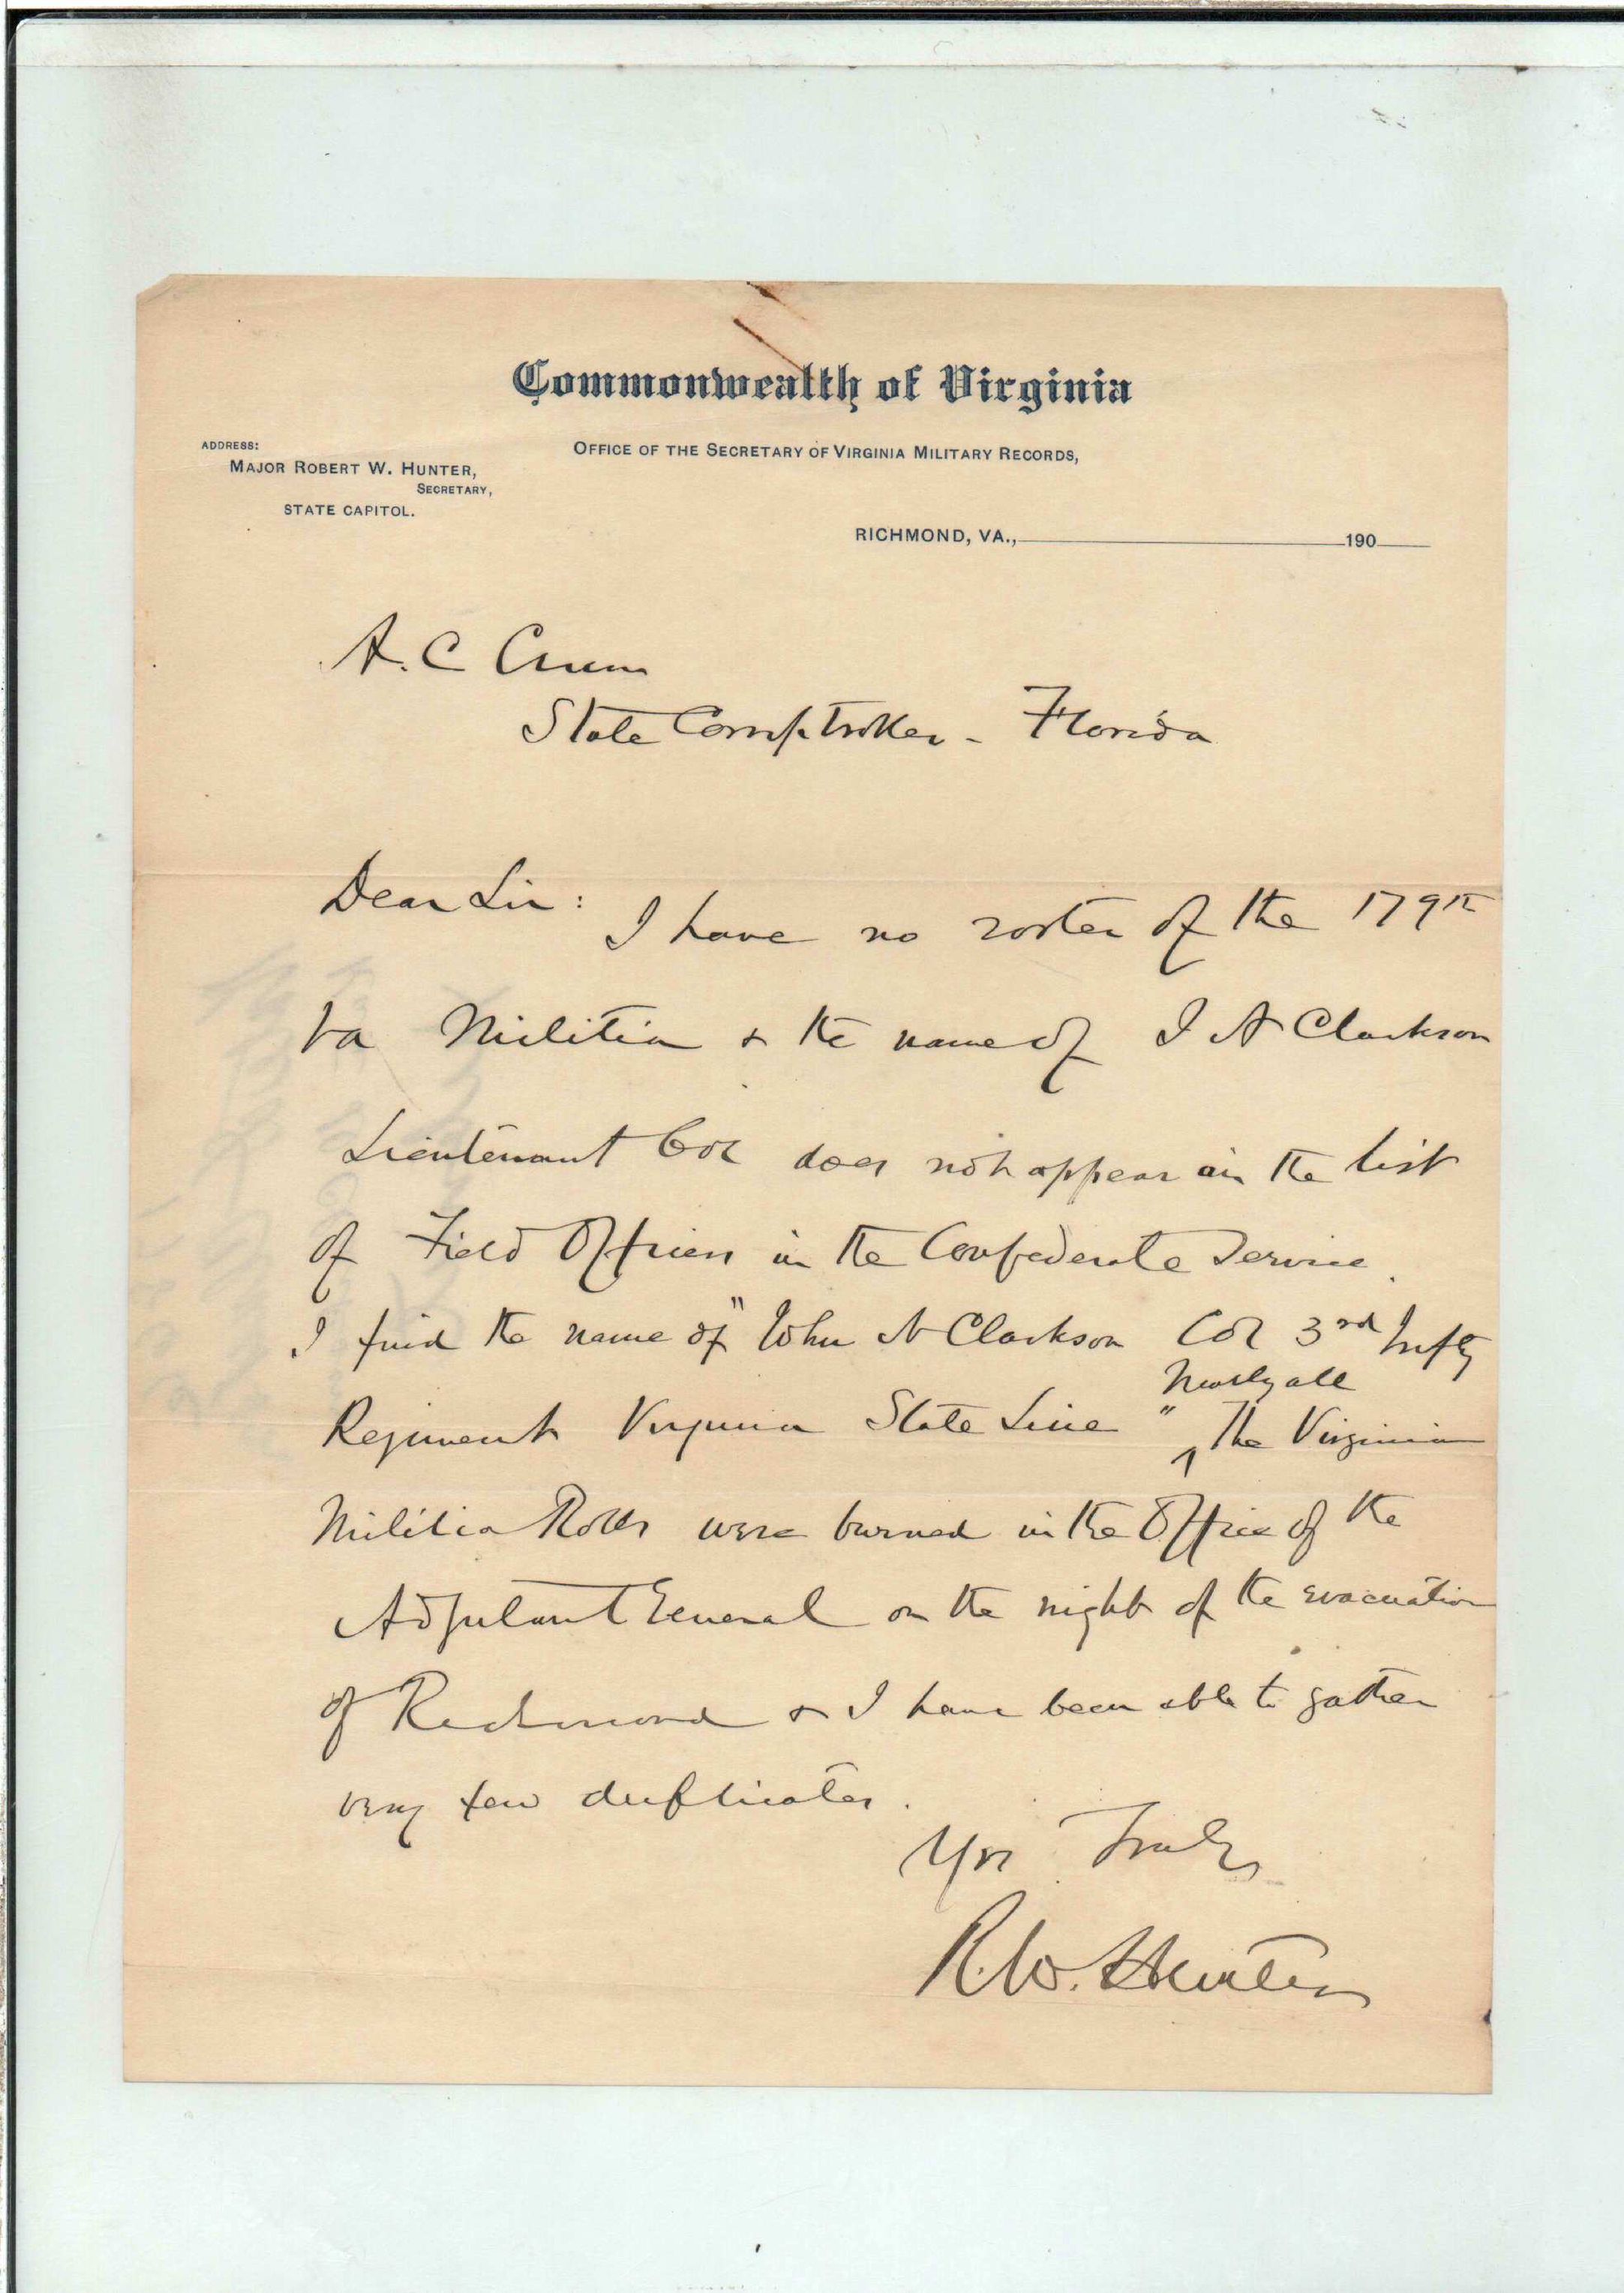 Commonwealth of Virginia
ADDRESS:
MAJOR ROBERT W. HUNTER,
SECRETARY,
STATE CAPITOL.
OFFICE OF THE SECRETARY OF VIRGINIA MILITARY RECORDS,
RICHMOND, VA., 190
A. C Crum
State Comptroller - Florida
Dear Sir:
I have no roster of the 179th
Va Militia & the name of J A Clarkson
Lieutenant Col does not appear in the list
of Field Officers in the Confederate Service.
I find the name of "John N Clarkson Col 3rd Infty
Nearly all
Regiment Virginia State Line" The Virginia
Militia Rolls were burned in the Office of the
Adjutant General on the night of the evacuation
of Richmond & I have been able to gather
very few duplicates.
Yrs Truly
R. W. Hunter